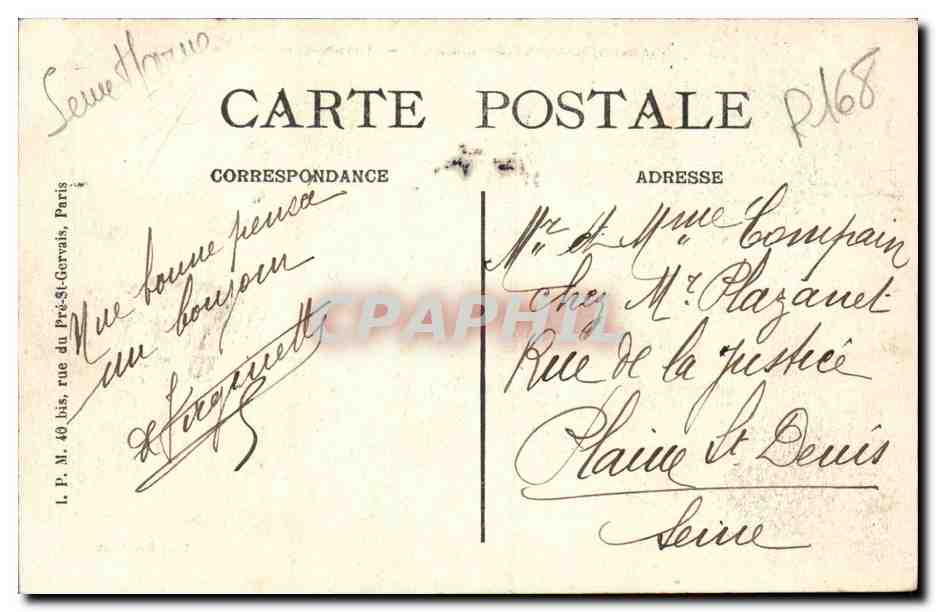 Seine et Marne
R168
CARTE POSTALE
CORRESPONDANCE
ADRESSE
I. P. M. 40 bis, rue du Pré-St-Gervais, Paris
Une bonne pensée
un bonjour
de
Mr et Mme Compain
chez Mr Plazanet
Rue de la Justice
Plaine St Denis
Seine
CPAPHIL